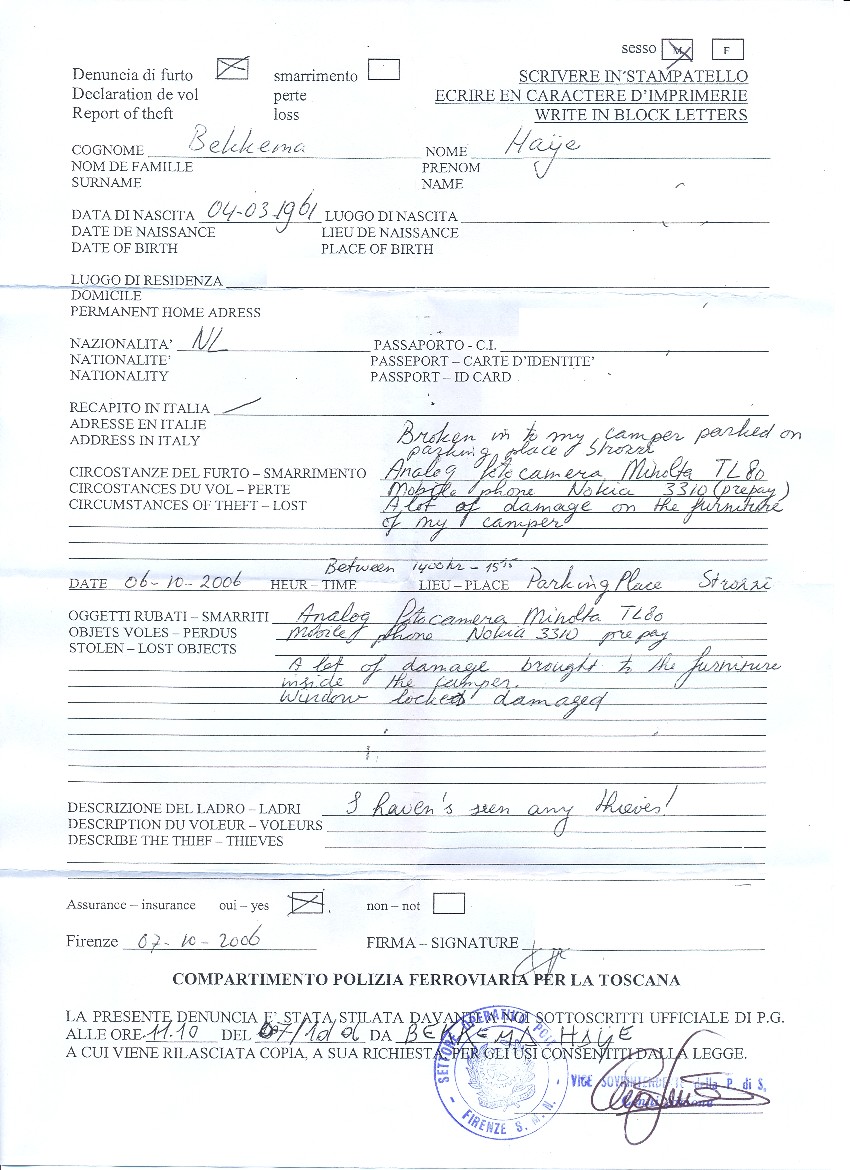 sesso M F
Denuncia di furto smarrimento SCRIVERE IN STAMPATELLO
Declaration de vol perte ECRIRE EN CARACTERE D'IMPRIMERIE
Report of theft loss WRITE IN BLOCK LETTERS
COGNOME Bekkema NOME Haije
NOM DE FAMILLE PRENOM
SURNAME NAME
DATA DI NASCITA 04-03-1961 LUOGO DI NASCITA
DATE DE NAISSANCE LIEU DE NAISSANCE
DATE OF BIRTH PLACE OF BIRTH
LUOGO DI RESIDENZA
DOMICILE
PERMANENT HOME ADRESS
NAZIONALITA' NL PASSAPORTO - C.I.
NATIONALITE' PASSEPORT – CARTE D'IDENTITE'
NATIONALITY PASSPORT – ID CARD
RECAPITO IN ITALIA
ADRESSE EN ITALIE Broken in to my camper parked on
ADDRESS IN ITALY parking place Strozzi
CIRCOSTANZE DEL FURTO – SMARRIMENTO Analog fotocamera Minolta TL80
CIRCOSTANCES DU VOL – PERTE Mobile phone Nokia 3310 (prepay)
CIRCUMSTANCES OF THEFT – LOST A lot of damage on the furniture
of my camper
Between 1400 hr – 15
DATE 06-10-2006 HEUR – TIME LIEU – PLACE Parking Place Strozzi
OGGETTI RUBATI – SMARRITI Analog Fotocamera Minolta TL80
OBJETS VOLES – PERDUS Mobile phone Nokia 3310 prepay
STOLEN – LOST OBJECTS
A lot of damage brought to the furniture
inside the camper.
Window locked damaged
DESCRIZIONE DEL LADRO – LADRI I haven's seen any thieves!
DESCRIPTION DU VOLEUR – VOLEURS
DESCRIBE THE THIEF – THIEVES
Assurance – insurance oui – yes non – not
Firenze 07-10-2006 FIRMA – SIGNATURE
COMPARTIMENTO POLIZIA FERROVIARIA PER LA TOSCANA
LA PRESENTE DENUNCIA E' STATA STILATA DAVANTI A NOI SOTTOSCRITTI UFFICIALE DI P.G.
ALLE ORE 11.10 DEL DA BEKKEMA HAIJE
A CUI VIENE RILASCIATA COPIA, A SUA RICHIESTA PER GLI USI CONSENTITI DALLA LEGGE.
SETTORE OPERATIVO POL
FIRENZE S. M. N.
VICE della P. di S.